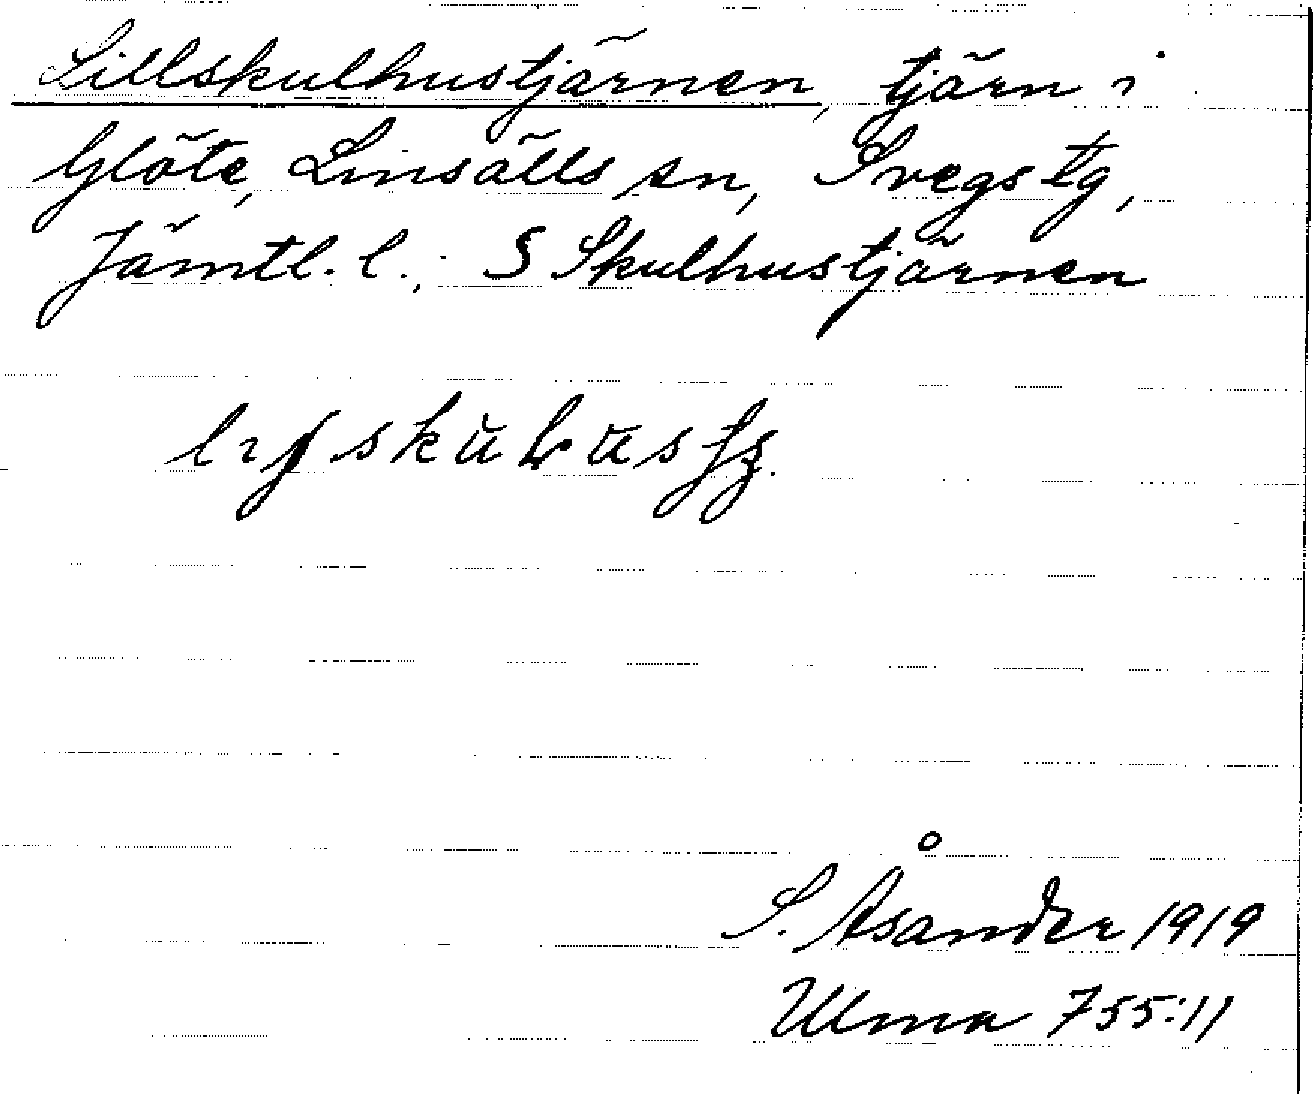 Lillskulhustjärnen, tjärn i
Glöte, Linsälls sn, Svegs tg,
Jämtl. l.; S Skulhustjärnen
S. Åsander 1919
Ulma 755:11